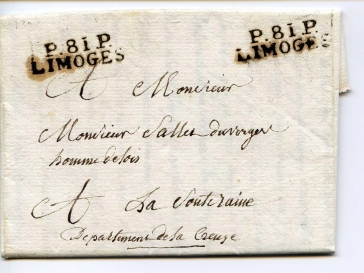 P.81.P. P.81.P.
LIMOGES LIMOGES
A Monsieur
Monsieur Salles duverger
homme de loix
A La Souteraine
Département de la Creuze